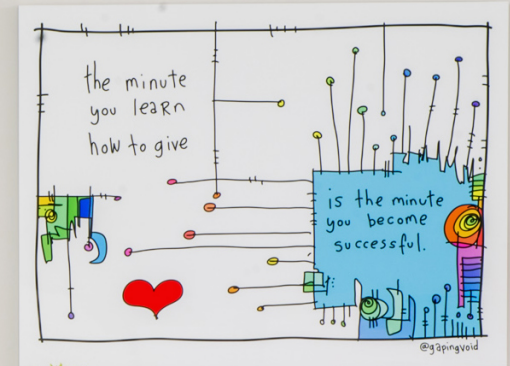 the minute
you learn
how to give
is the minute
you become
successful.
@gapingvoid